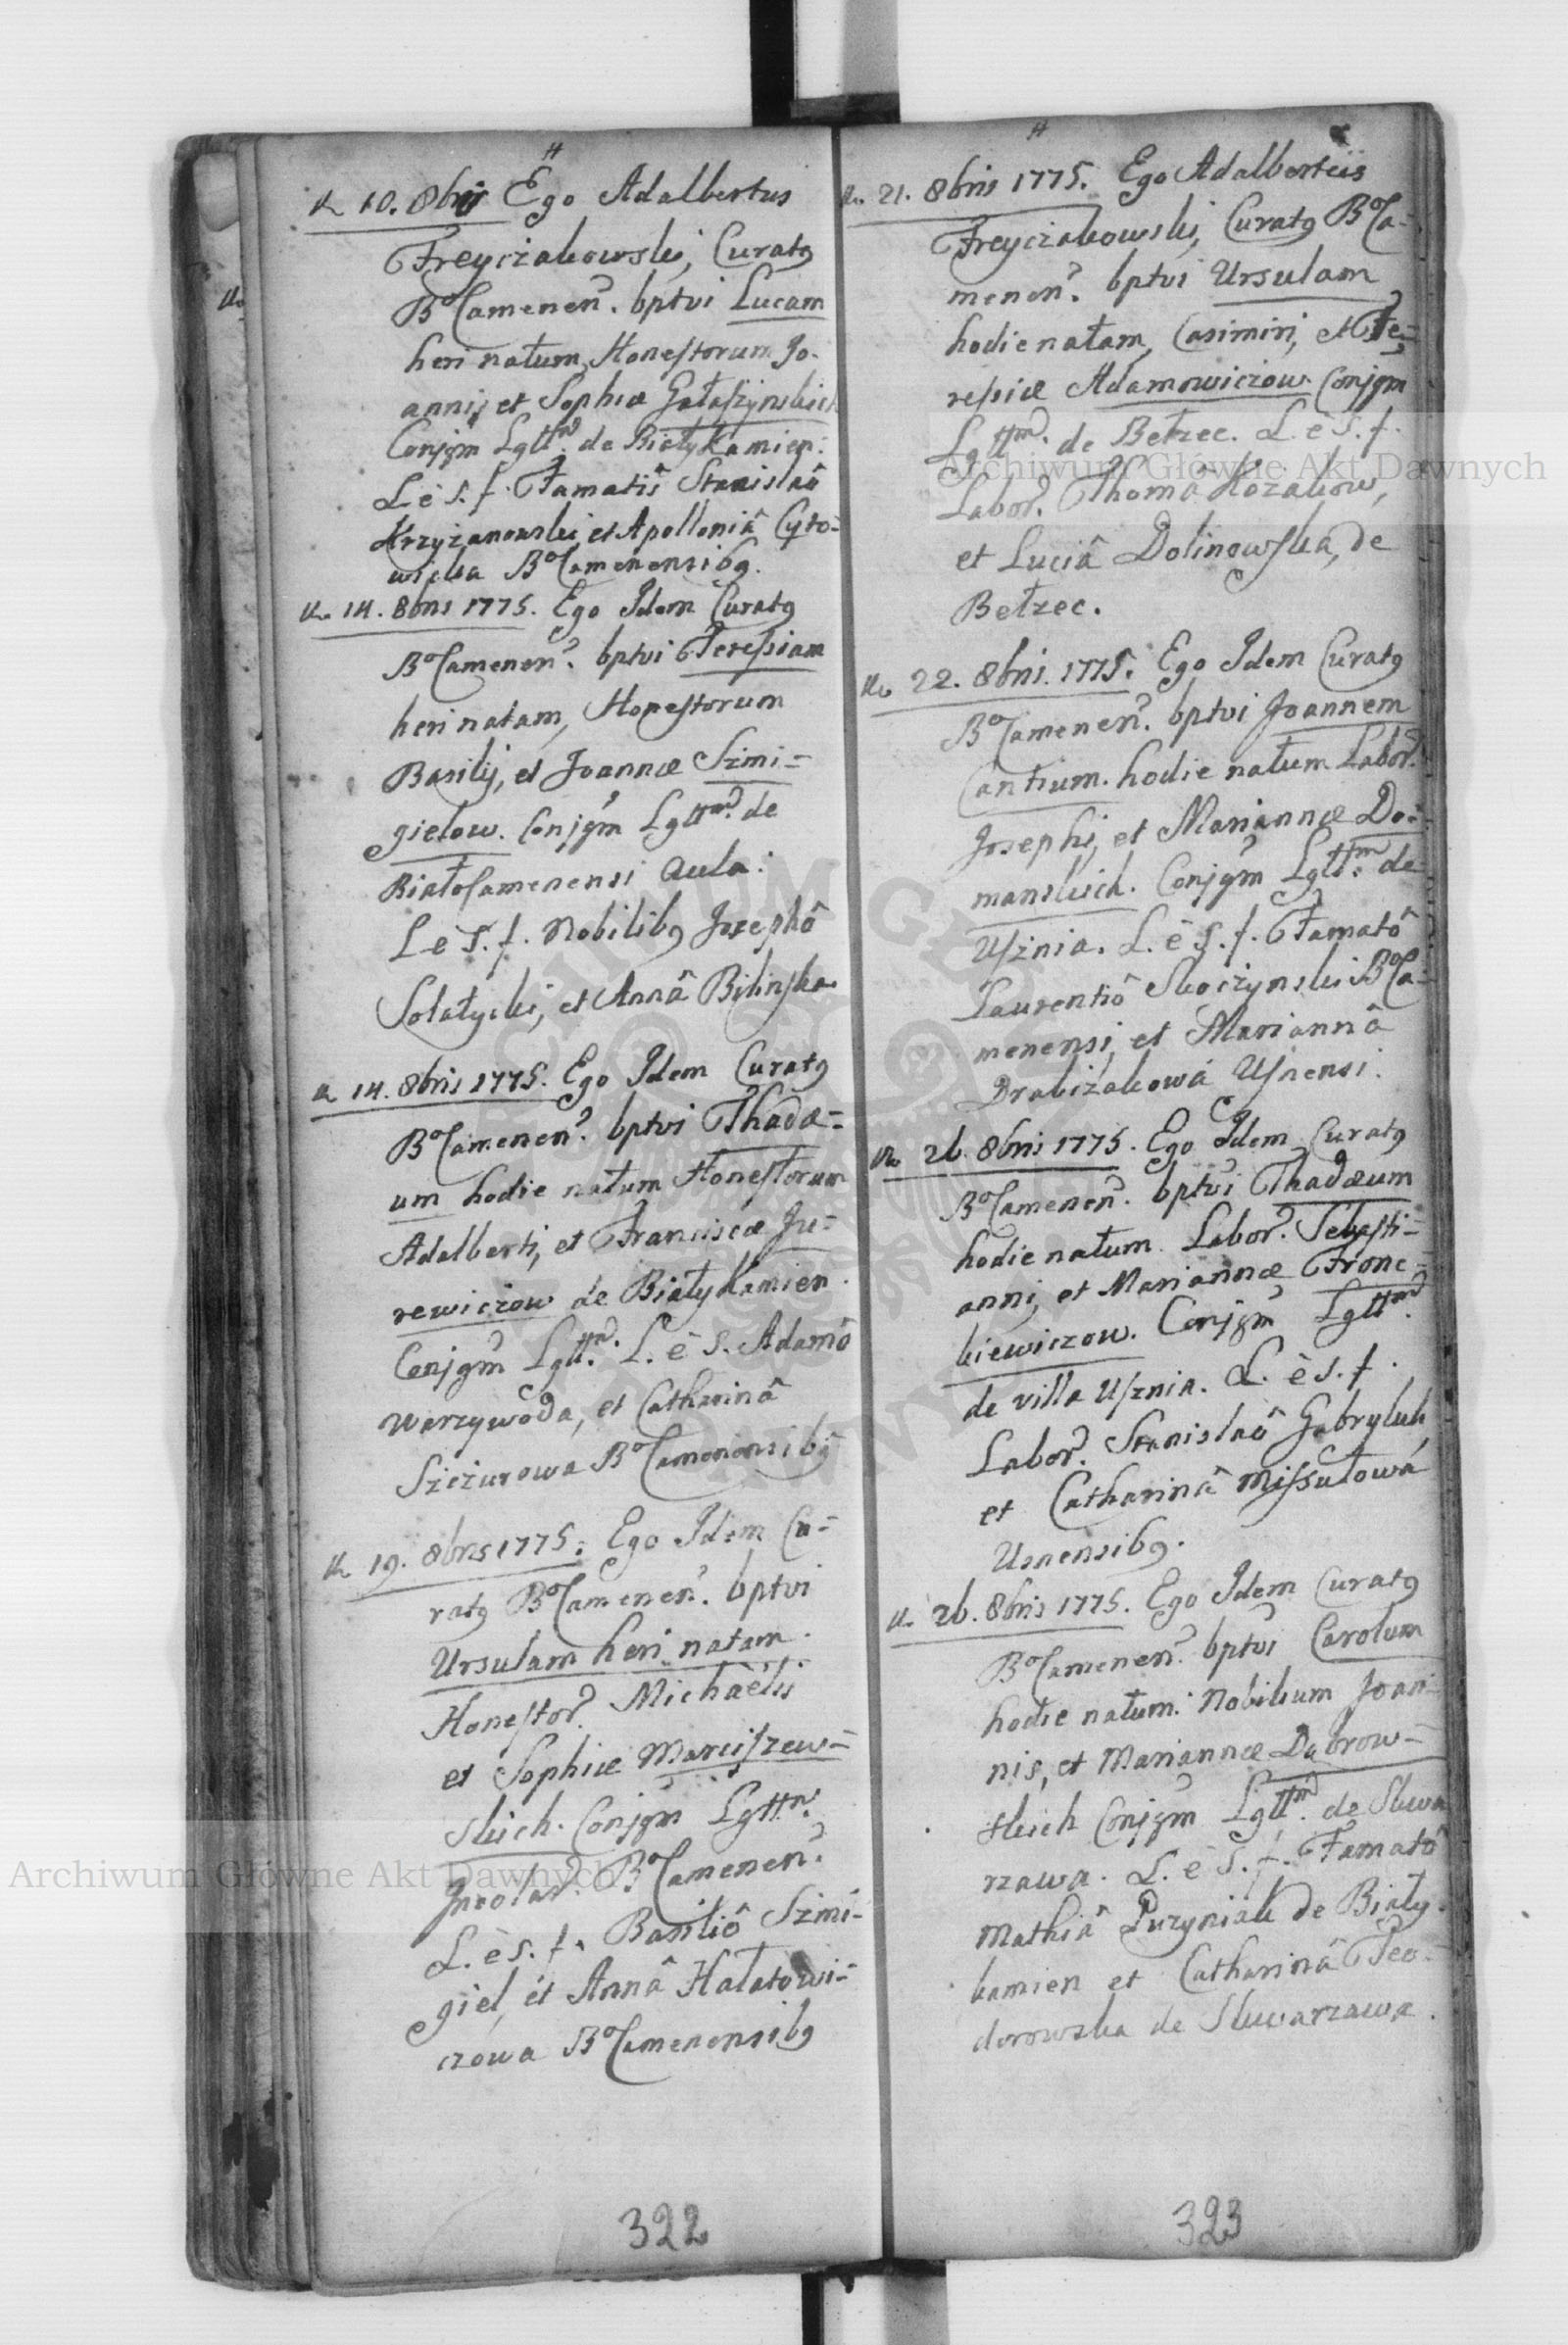 10. 8bris Ego Adalbertus
Freyczakowski, Curat9
BoCamenen. bptvi Lucam
heri natum, Honestorum Jo-
annis et Sophiæ Gałaszynskich
Conjgm Lgttm. de Białykamien:
L è S. f. Famatis Stanislaô
Krzyżanowski et Apolloniâ Cyto-
wicka BoCamenensib9.
14. 8bris 1775. Ego Idem Curat9
BoCamenen. bptvi Teressiam
heri natam, Honestorum
Basilij, et Joannæ Szmi-
gielow. Conjgm Lgttm. de
Białocamenensi Aula:
L è S. f. Nobilib9 Josephô
Solatycki, et Annâ Bilinska
14. 8bris 1775. Ego Idem Curat9
BoCamenen. bptvi Thadæ-
um hodie natum Honestorum
Adalberti, et Franciscæ Ju-
rewiczow de Białykamien.
Conjgm Lgttm. L. è S. Adamô
Warzywoda, et Catharinâ
Szczurowa BoCamenensib9
19. 8bris 1775. Ego Idem Cu-
rat9 BoCamenen. bptvi
Ursulam heri natam.
Honestor. Michaèlis
et Sophiæ Marciszew-
skich. Conjgm Lgttm.
Incolar. BoCamenen.
L. è S. f. Basiliô Szmi-
giel, et Annâ Hałatowi-
czowa BoCamenensib9
322
21. 8bris 1775. Ego Adalbertus
Freyczakowski, Curat9 BoCa-
menen. bptvi Ursulam
hodie natam, Casimiri, et Te-
ressiæ Adamowiczow Conjgm
Lgttm. de Bełzec. L. è S. f.
Labor. Thoma Kozakow,
et Luciâ Dolinowska, de
Bełzec.
22. 8bris 1775. Ego Idem Curat9
BoCamenen. bptvi Joannem
Cantium. hodie natum Labor.
Josephi, et Mariannæ Do-
manskich. Conjgm Lgttm. de
Usznia. L. è S. f. Famatô
Laurentiô Skoczynski BoCa-
menensi, et Mariannâ
Drabiżakowá Usnensi.
26. 8bris 1775. Ego Idem Curat9
BoCamenen. bptvi Thadæum
hodie natum. Labor. Sebasti-
anni, et Mariannæ Fronc-
kiewiczow. Conjgm Lgttm.
de villa Usznia. L. è S. f.
Labor. Stanislaô Gabryluk
et Catharinâ Missułowá
Usnensib9.
26. 8bris 1775. Ego Idem Curat9
BoCamenen. bptvi Carolum
hodie natum. Nobilium Joan-
nis, et Mariannæ Dąbrow-
skich Conjgm Lgttm. de Skwa
rzawa. L. è S. f. Famatô
Mathiâ Puzyniak de Biały-
kamien et Catharinâ Teo-
dorowska de Skwarzawa.
323
Archiwum Główne Akt Dawnych
Archiwum Główne Akt Dawnych